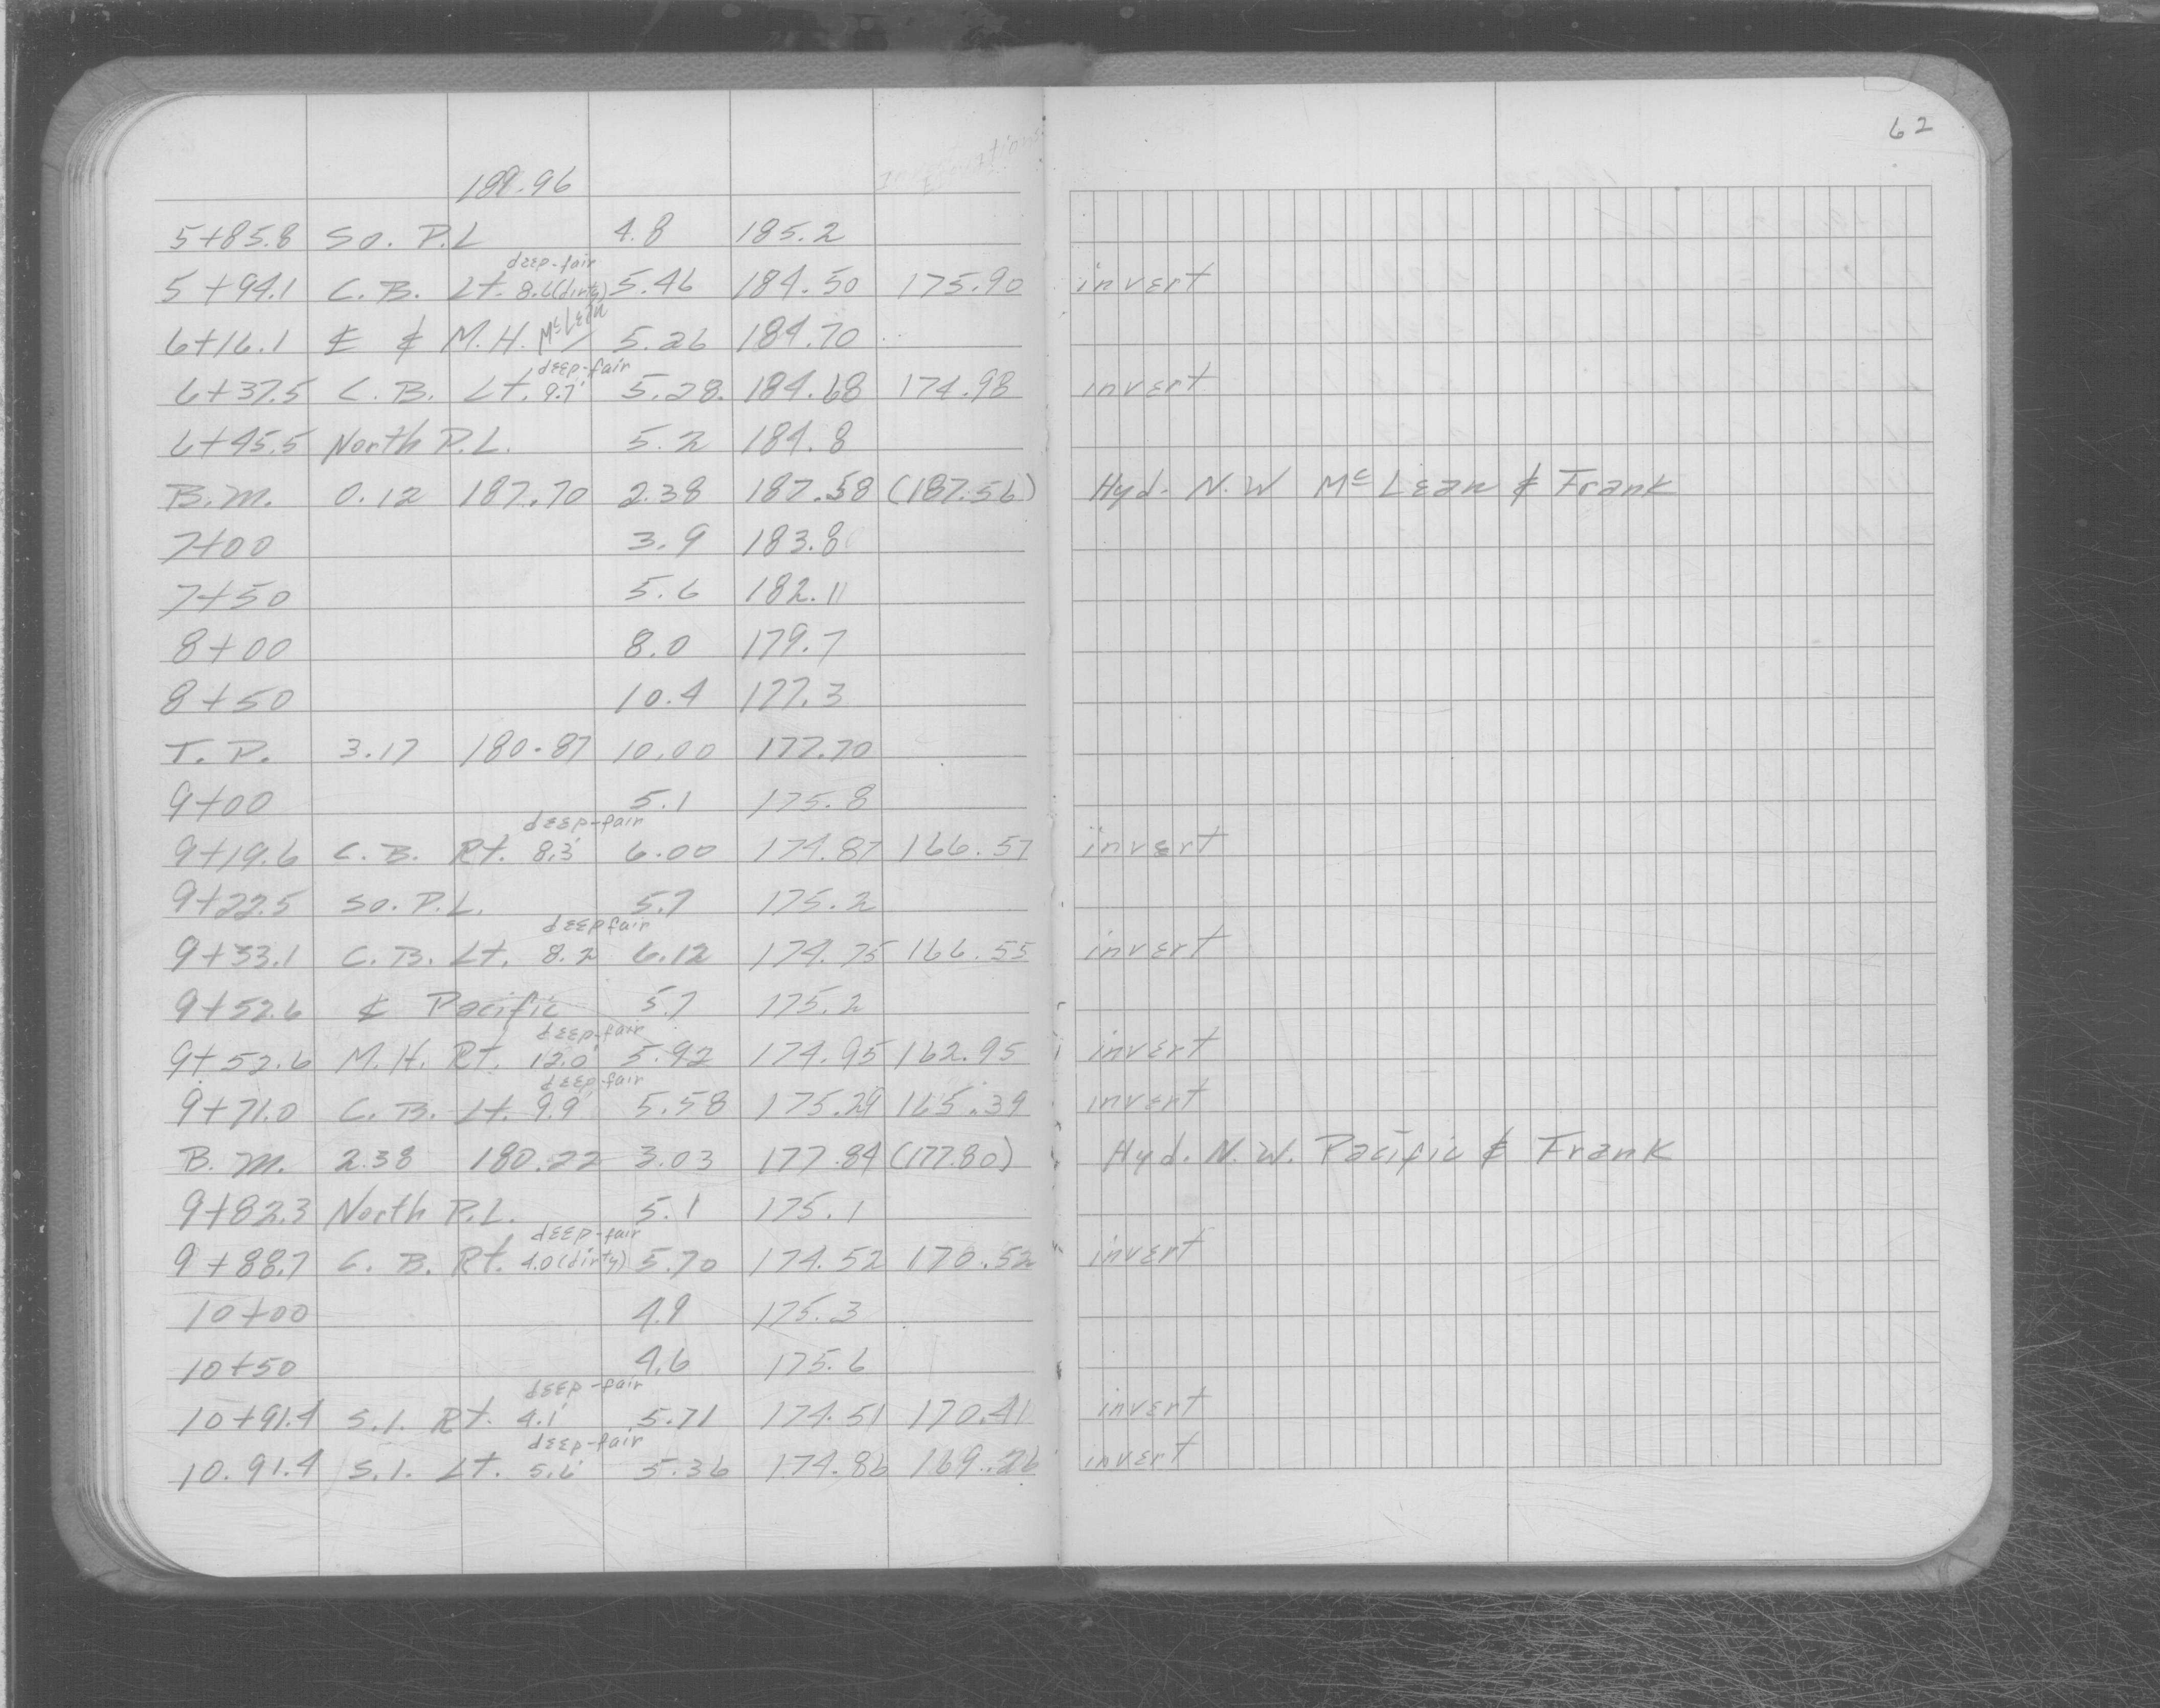 62
189.96
5+85.8 So. P.L 4.8 185.2
5+94.1 C.B. Lt. deep-fair 8.6(dirty) 5.46 184.50 175.90 invert
6+16.1 ℄ & M.H. McLean 5.26 184.70
6+37.5 C.B. Lt. deep-fair 9.7' 5.28 184.68 174.98 invert
6+45.5 North P.L. 5.2 184.8
B.M. 0.12 187.70 2.38 187.58 (187.56) Hyd. N.W McLean & Frank
7+00 3.9 183.8
7+50 5.6 182.1
8+00 8.0 179.7
8+50 10.4 177.3
T.P. 3.17 180.87 10.00 177.70
9+00 5.1 175.8
9+19.6 C.B. Rt. deep-fair 8.3' 6.00 174.87 166.57 invert
9+22.5 So. P.L. 5.7 175.2
9+33.1 C.B. Lt. deep fair 8.2 6.12 174.75 166.55 invert
9+52.6 ℄ Pacific 5.7 175.2
9+52.6 M.H. Rt. deep-fair 12.0' 5.92 174.95 162.95 invert
9+71.0 C.B. Lt. deep-fair 9.9' 5.58 175.29 165.39 invert
B.M. 2.38 180.22 3.03 177.84 (177.80) Hyd. N.W. Pacific & Frank
9+82.3 North P.L. 5.1 175.1
9+88.7 C.B. Rt. deep-fair 4.0(dirty) 5.70 174.52 170.52 invert
10+00 4.9 175.3
10+50 4.6 175.6
10+91.4 S.I. Rt. deep-fair 4.1' 5.71 174.51 170.41 invert
10.91.4 S.I. Lt. deep-fair 5.6' 5.36 174.86 169.26 invert